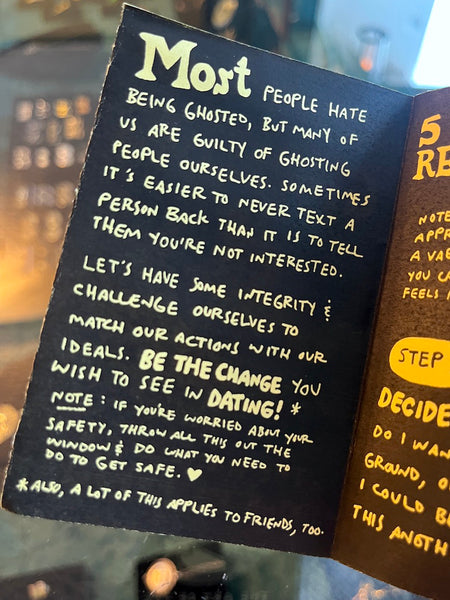 Most PEOPLE HATE
BEING GHOSTED, BUT MANY OF
US ARE GUILTY OF GHOSTING
PEOPLE OURSELVES. SOMETIMES
IT'S EASIER TO NEVER TEXT A
PERSON BACK THAN IT IS TO TELL
THEM YOU'RE NOT INTERESTED.
LET'S HAVE SOME INTEGRITY &
CHALLENGE OURSELVES TO
MATCH OUR ACTIONS WITH OUR
IDEALS. BE THE CHANGE YOU
WISH TO SEE IN DATING! *
NOTE: IF YOU'RE WORRIED ABOUT YOUR
SAFETY, THROW ALL THIS OUT THE
WINDOW & DO WHAT YOU NEED TO
DO TO GET SAFE. ♥
* ALSO, A LOT OF THIS APPLIES TO FRIENDS, TOO.
5
RE
NOTE
APPR
A VAE
YOU CA
FEELS
STEP
DECIDE
DO I WAN
GROUND, O
I COULD B
THIS ANOTH